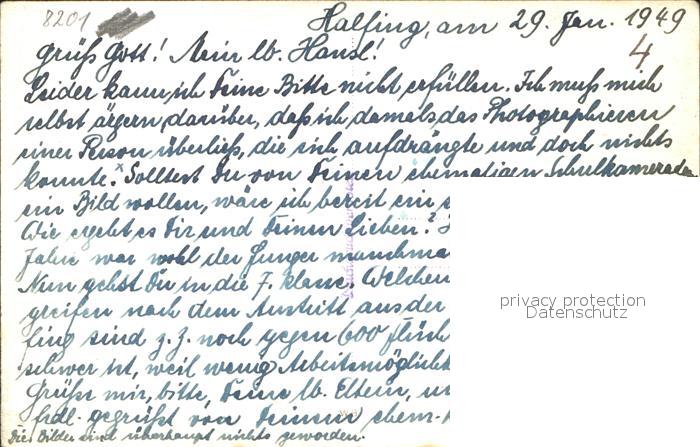 8201
Halfing, am 29. Jan. 1949
4
Grüß Gott! Mein lb. Hansl!
Leider kann ich Deine Bitte nicht erfüllen. Ich muß mich
selbst ärgern darüber, daß ich damals das Photographieren
einer Person überließ, die sich aufdrängte und doch nichts
konnte. x Solltest Du von Deinen ehematigen Schulkameraden
ein Bild wollen, wäre ich bereit ein
Wie ergeht es Dir und Deinen Lieben?
Jahre war wohl der Hunger manchma
Nun gehst Du in die 7. Klasse. Welchen
greifen nach dem Austritt aus der
fing sind z. Z. noch gegen 600 Flüch
schwer ist, weil wenig Arbeitsmöglicht
Grüße mir, bitte, Deine lb. Eltern, u
frdl. gegrüßt von Deinem ehem.
Die Bilder sind überhaupt nichts geworden.
privacy protection
Datenschutz